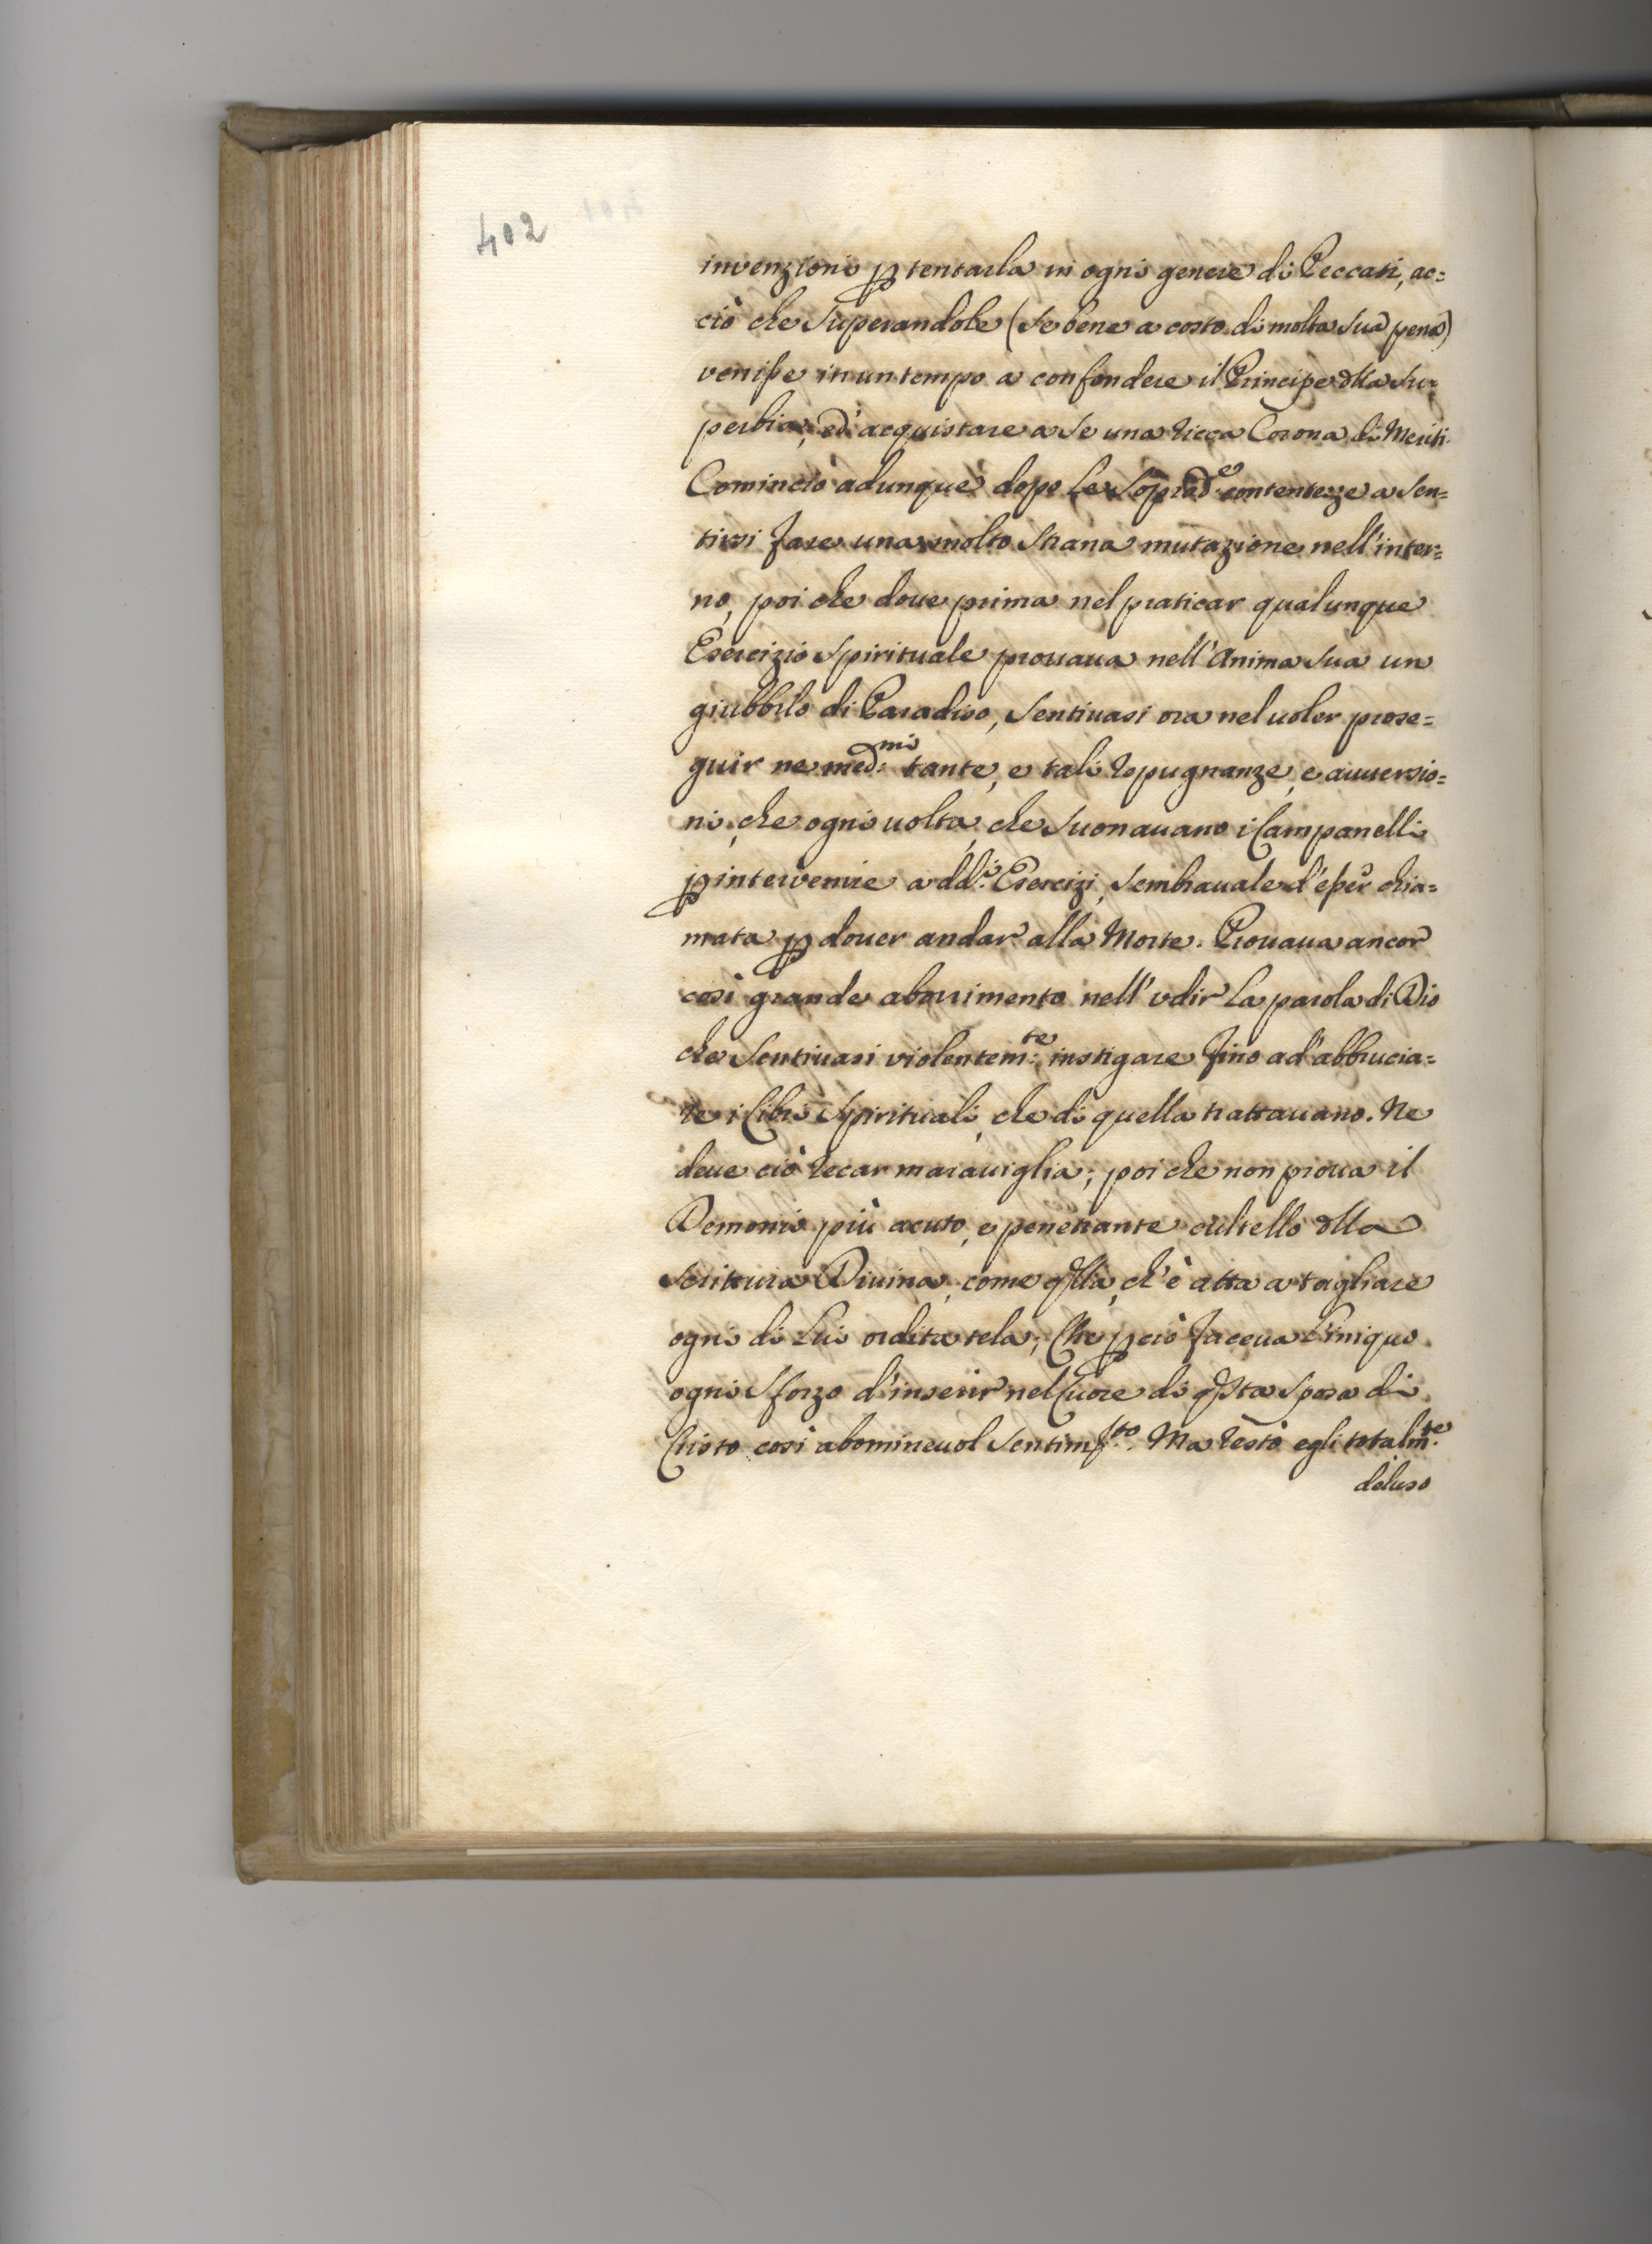 402
invenzioni p tentarla in ogni genere di Peccati, ac=
ciò che superandole (se bene a costo di molta sua pena)
venisse in un tempo a confondere il Principe dlla Su=
perbia, ed' acquistare a se una ricca Corona di Meriti.
Cominciò adunque dopo le Soprad.e contentezze a sen=
tirsi fare una molto strana mutazione nell'inter=
no, poi che doue prima nel praticar qualunque
Esercizio Spirituale prouaua nell'Anima sua un
giubbilo di Paradiso, sentiuasi ora nel uoler prose=
guir ne med:mi tante, e tali repugnanze, e auuersio=
ni, che ogni uolta, che suonauano i Campanelli
p intervenire a dd.i Esercizi, sembrauale d'esser chia=
mata p douer andar alla Morte. Prouaua ancor
così grande aborrimento nell'vdir la parola di Dio
che sentiuasi violentem:te instigare fino ad'abbrucia=
re i libri Spirituali, che di quella trattauano. Ne
deue ciò recar marauiglia; poi che non proua il
Demonio più acuto, e penetrante cultello dlla
Scrittura Diuina, come qlla, ch'è atta a tagliare
ogni di Lui ordita tela; Che p ciò faceua l'iniquo
ogni sforzo d'inserir nel Cuore di qsta Sposa di
Cristo così abomineuol sentim.to. Ma restò egli totalm:te
deluso